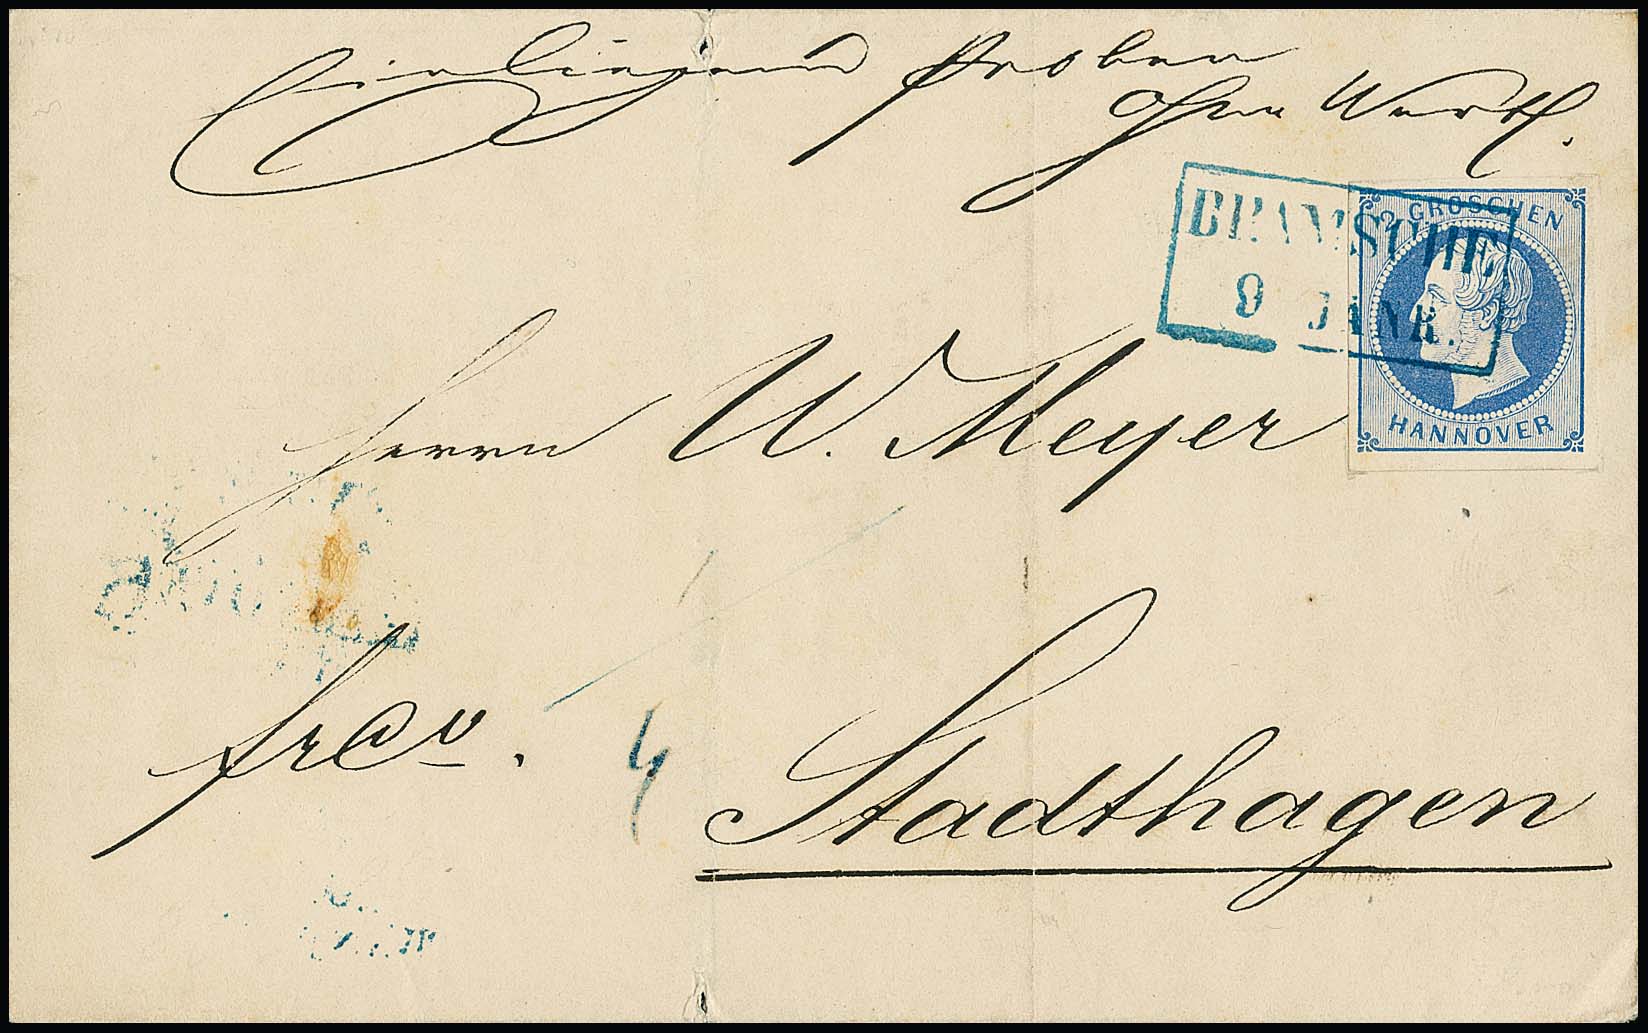 Einliegend Proben
ohne Werth.
BRAMSCHE
9 JANR.
2 GROSCHEN
HANNOVER
Herrn W. Meyer
frco.
4
Stadthagen